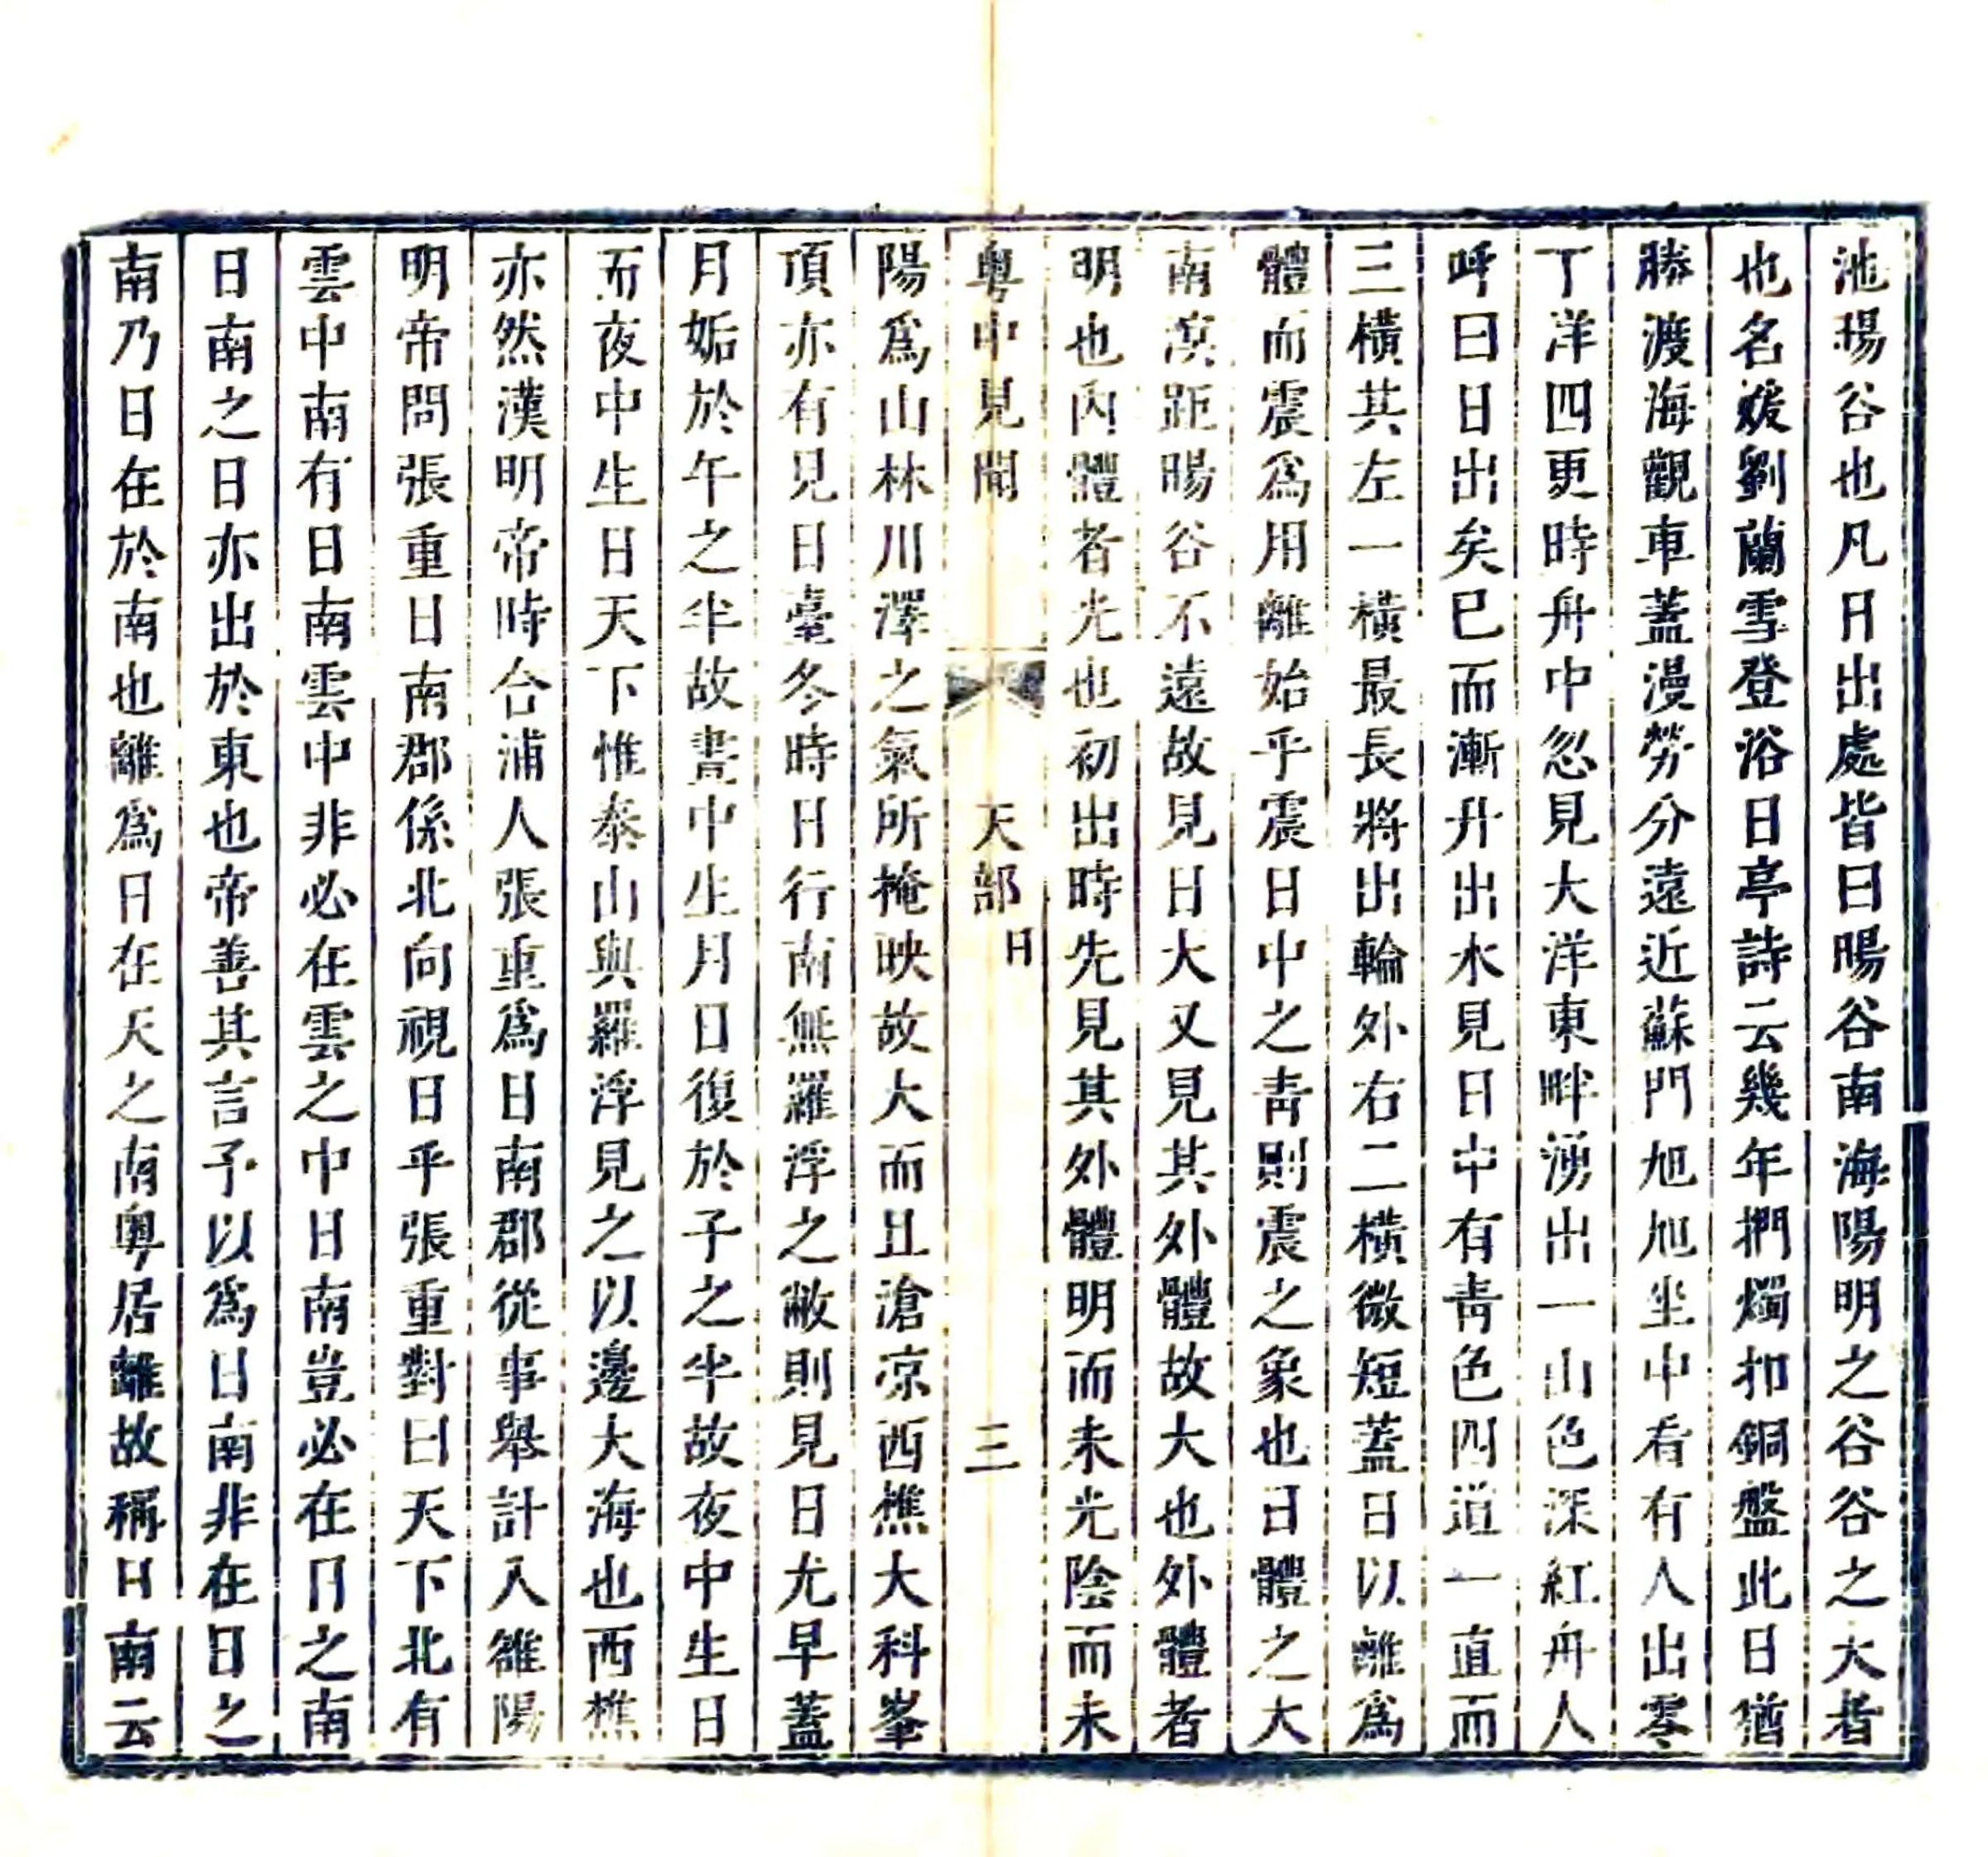 池暘谷也凡日出處皆曰暘谷南海陽明之谷谷之大者
也名媛劉蘭雪登浴日亭詩云幾年捫燭扣銅盤此日猶
勝渡海觀車蓋漫勞分遠近蘇門旭旭坐中看有人出零
丁洋四更時舟中忽見大洋東畔湧出一山色深紅舟人
呼曰日出矣已而漸升出水見日中有靑色四道一直而
三橫其左一橫最長將出輪外右二橫微短蓋日以離爲
體而震爲用離始乎震日中之靑則震之象也日體之大
南溟距暘谷不遠故見日大又見其外體故大也外體者
明也內體者光也初出時先見其外體明而未光陰而未
粤中見聞 天部 日 三
陽爲山林川澤之氣所掩映故大而且滄凉西樵大科峯
頂亦有見日臺冬時日行南無羅浮之蔽則見日尤早蓋
月姤於午之半故晝中生月日復於子之半故夜中生日
而夜中生日天下惟泰山與羅浮見之以邊大海也西樵
亦然漢明帝時合浦人張重爲日南郡從事舉計入雒陽
明帝問張重日南郡係北向視日乎張重對曰天下北有
雲中南有日南雲中非必在雲之中日南豈必在日之南
日南之日亦出於東也帝善其言予以爲日南非在日之
南乃日在於南也離爲日在天之南粤居離故稱日南云